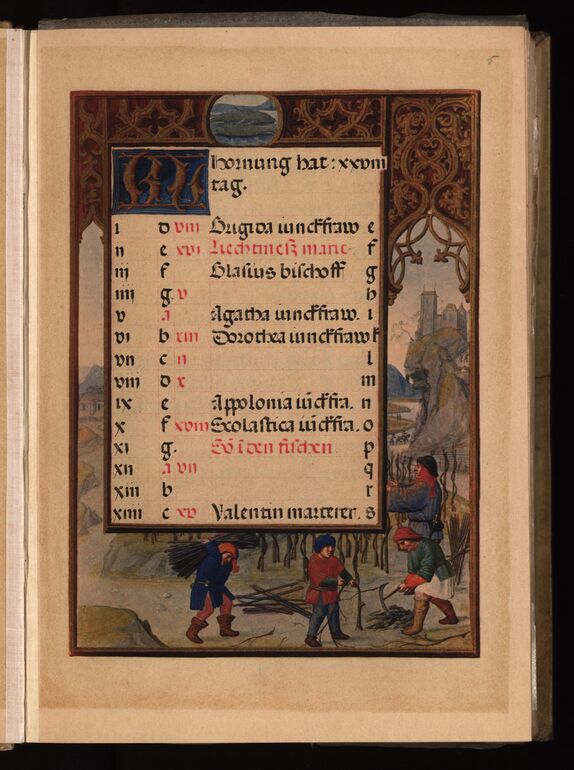 5
KL Hornung hat: xxviii
tag.
i d viii Brigida iunckfraw e
ii e xvi Liechtmeß marie f
iii f Blasius bischoff g
iiii g v h
v a Agatha iunckfraw. i
vi b xiii Dorothea iunckfraw k
vii c ii l
viii d x m
ix e Appolonia iūckfra. n
x f xviii Scolastica iūckfra. o
xi g. Sō ī den fischen p
xii a vii q
xiii b r
xiiii c xv Valentin marterer. s